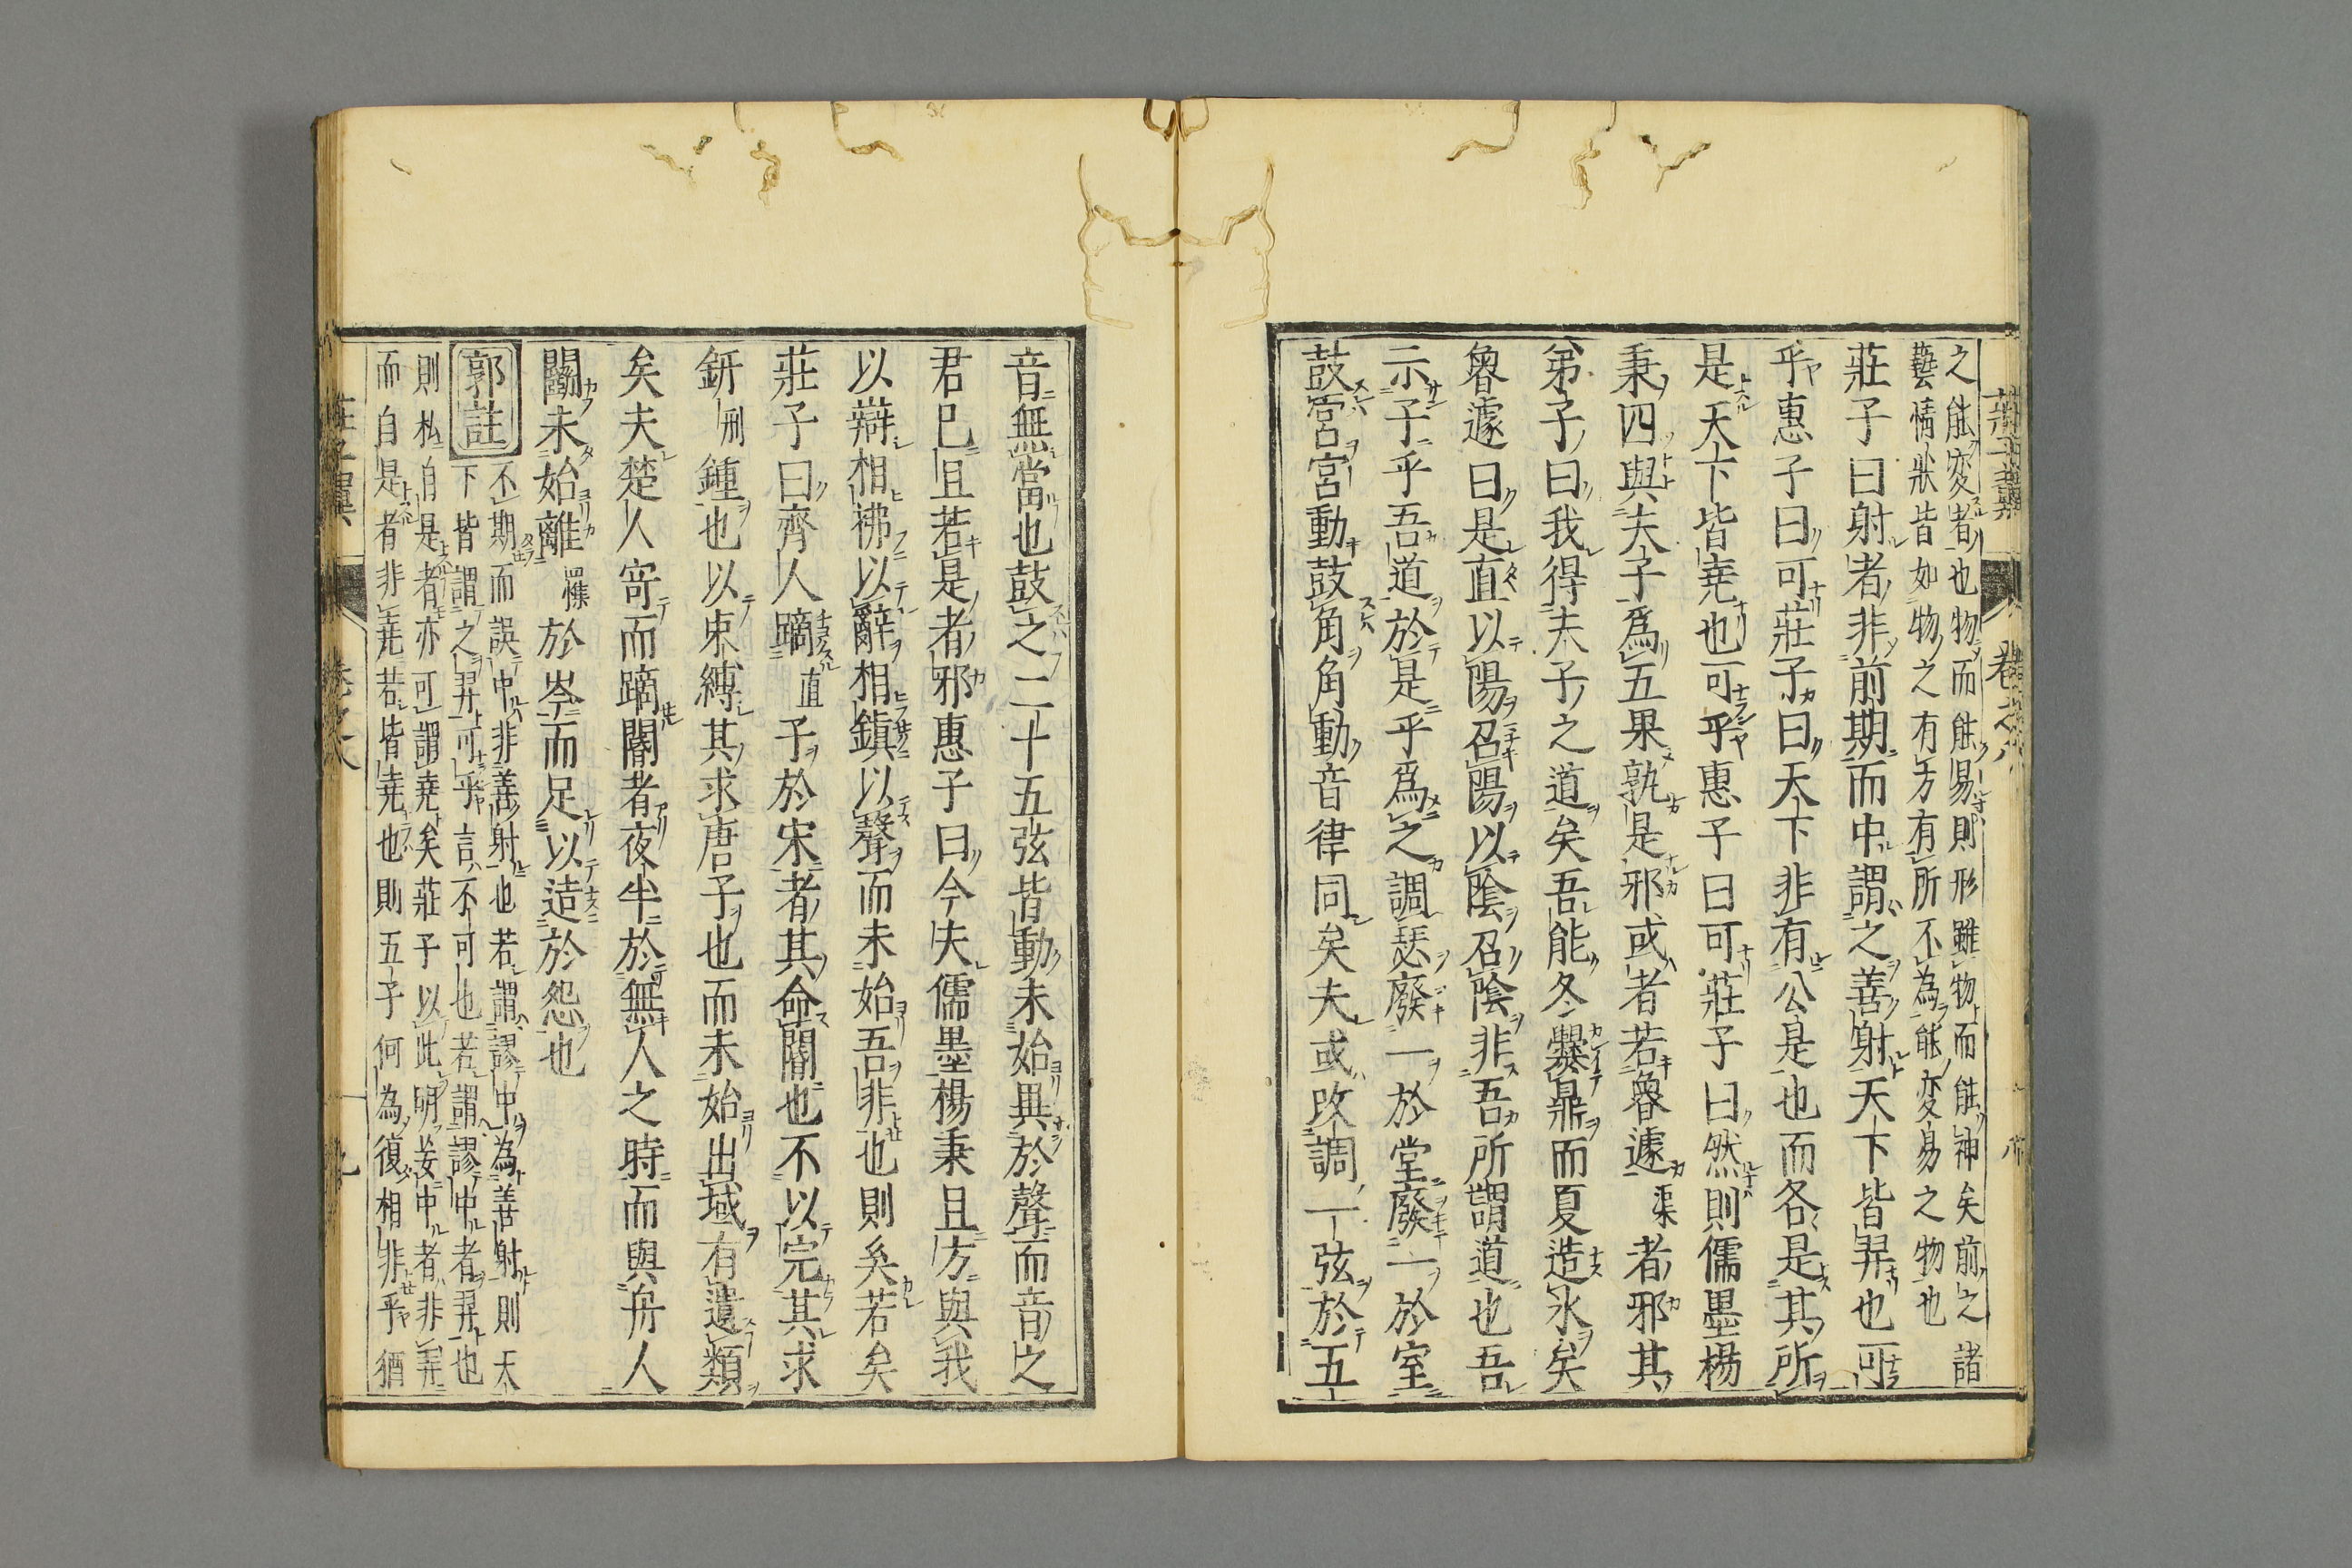 之能変者也物而能易則形雖物而能神矣前之諸
藝情狀皆如物之有方有所不為能変易之物也
莊子曰射者非前期而中謂之善射天下皆羿也可
乎惠子曰可莊子曰天下非有公是也而各是其所
是天下皆堯也可乎惠子曰可莊子曰然則儒墨楊
秉四與夫子爲五果孰是邪或者若魯遽渠者邪其
弟子曰我得夫子之道矣吾能冬爨鼎而夏造氷矣
魯遽曰是直以陽召陽以陰召陰非吾所謂道也吾
示子乎吾道於是乎爲之調瑟廢一於堂廢一於室
鼓宮宮動鼓角角動音律同矣夫或改調一弦於五
音無當也鼓之二十五弦皆動未始異於聲而音之
君已且若是者邪惠子曰今夫儒墨楊秉且方與我
以辯相拂以辭相鎮以聲而未始吾非也則奚若矣
莊子曰齊人蹢直子於宋者其命閽也不以完其求
鈃刑鍾也以束縛其求唐子也而未始出域有遺類
矣夫楚人寄而蹢閽者夜半於無人之時而與舟人
鬭未始離罹於岑而足以造於怨也
郭註
不期而誤中非善射也若謂謬中為善射則天
下皆謂之羿可乎言不可也若謂謬中者羿也
則私自是者亦可謂堯矣莊子以此明妄中者非羿
而自是者非堯若皆堯也則五子何為復相非乎猶